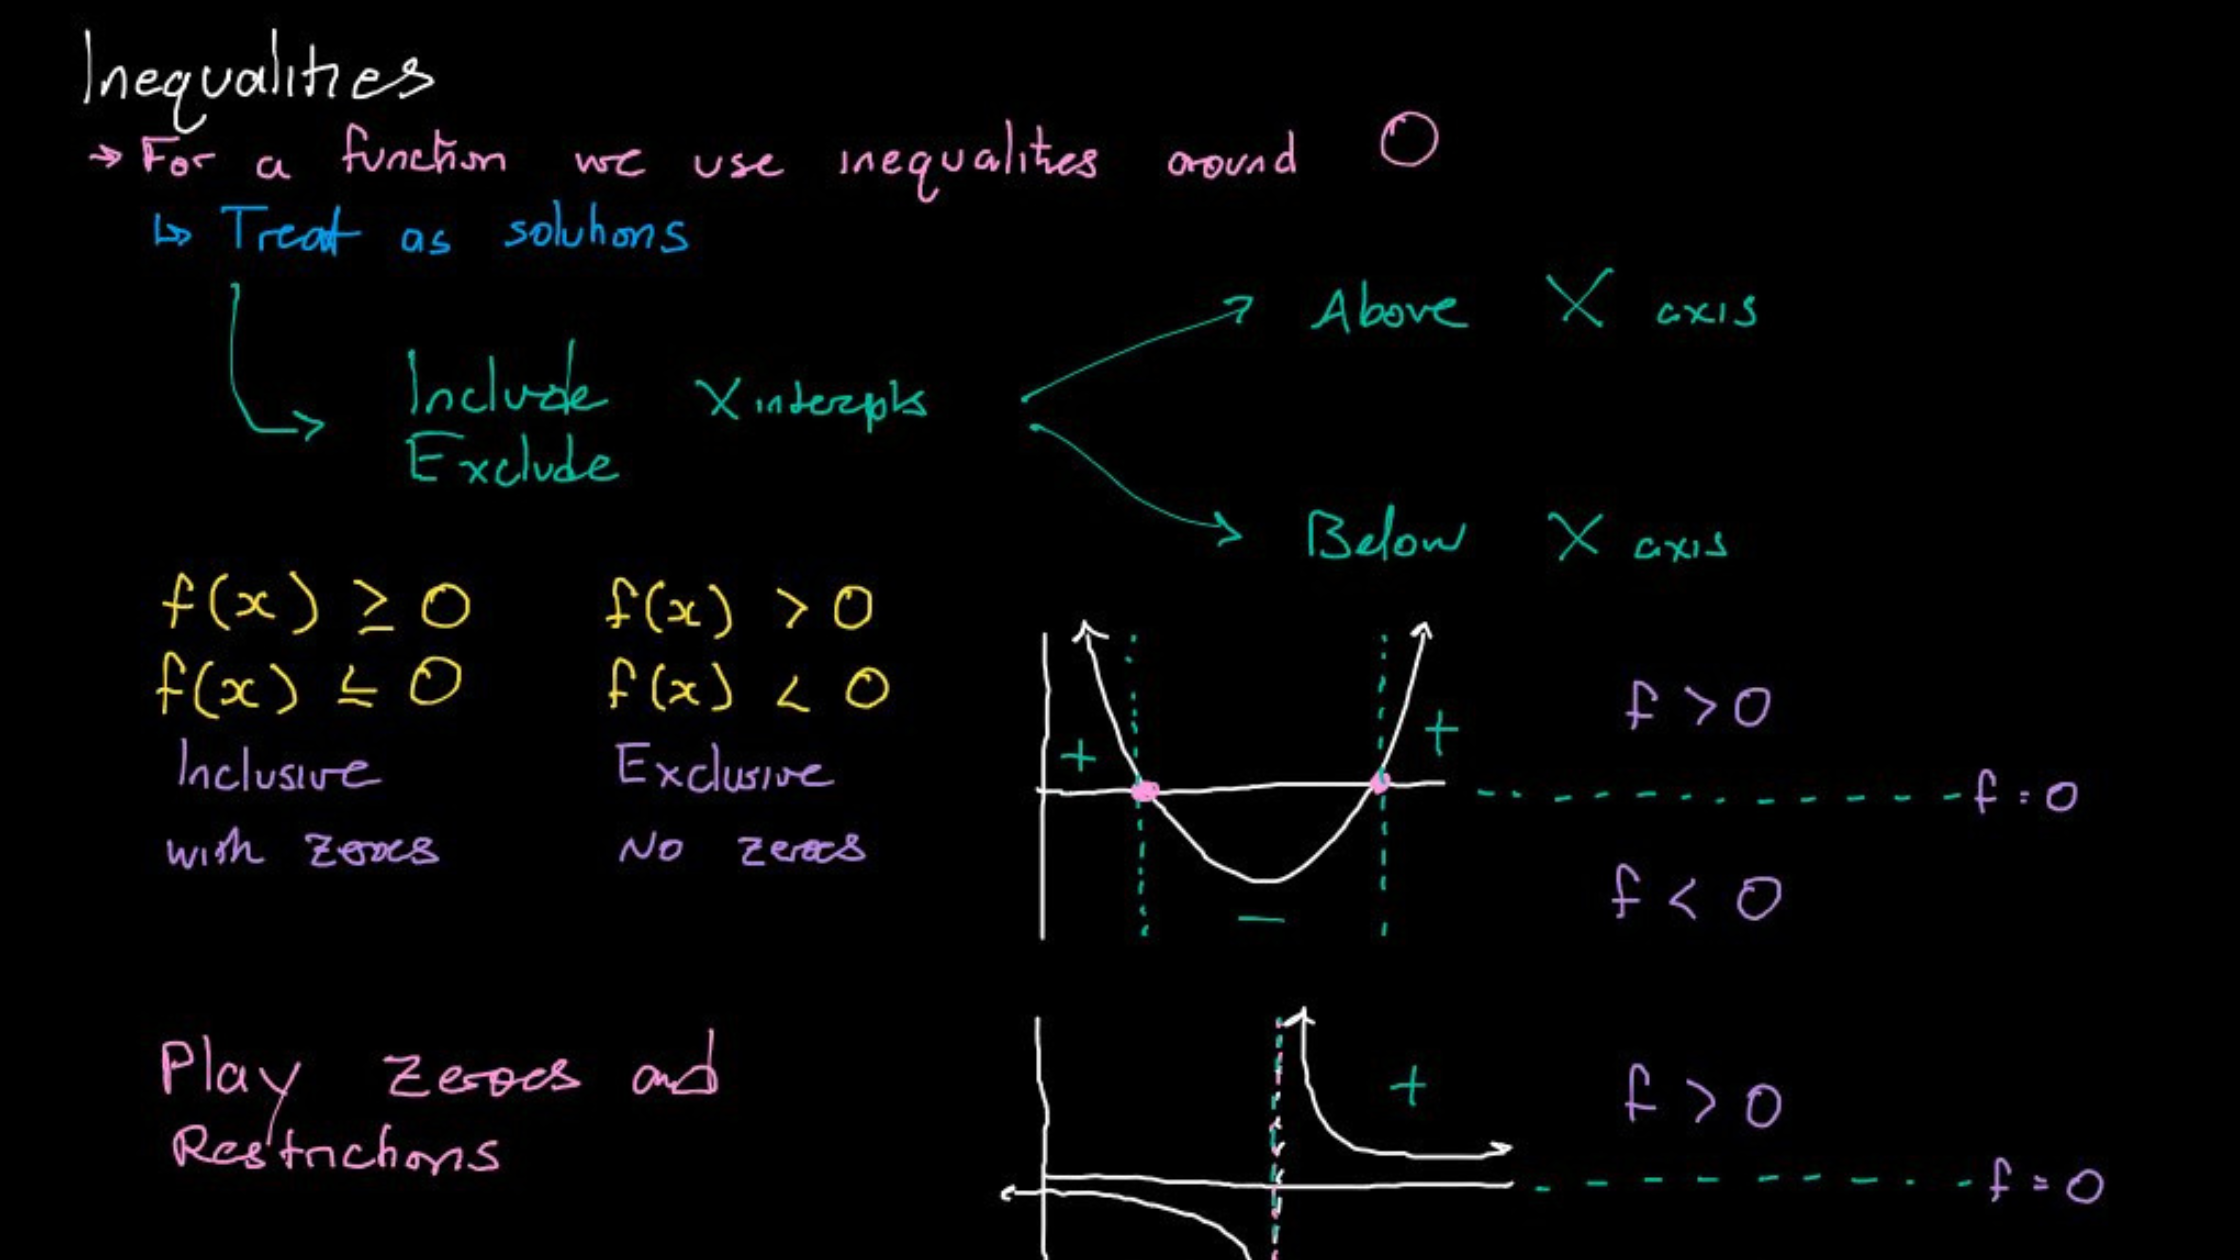 Inequalities
→ For a function we use inequalities around 0
↳ Treat as solutions
Above X axis
Include X intercepts
Exclude
Below X axis
f(x) ≥ 0
f(x) > 0
f(x) ≤ 0
f(x) < 0
Inclusive
Exclusive
with zeroes
No zeroes
+
+
f > 0
f = 0
−
f < 0
Play zeroes and
Restrictions
+
f > 0
f = 0